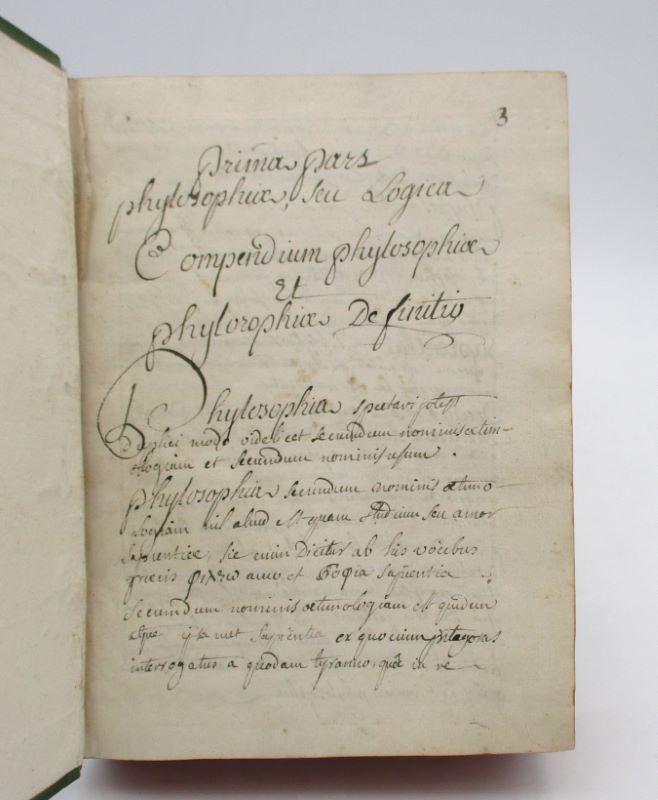 3
Prima Pars
phylosophiæ, seu Logica
Compendium phylosophiæ
Et
phylosophiæ Definitio
Phylosophia spectari potest
duplici modo videlicet secundum nominis etim-
ologiam et secundum nominis usum.
Phylosophia secundum nominis ætimo-
logiam nil aliud est quam studium seu amor
sapientiæ, sic enim Dicitur ab his vocibus
græcis amo et sapientia
Secundum nominis ætimologiam est quidem
ipsamet sapientia ex quo enim pitagoras
interrogatus a quodam tyranno, in re